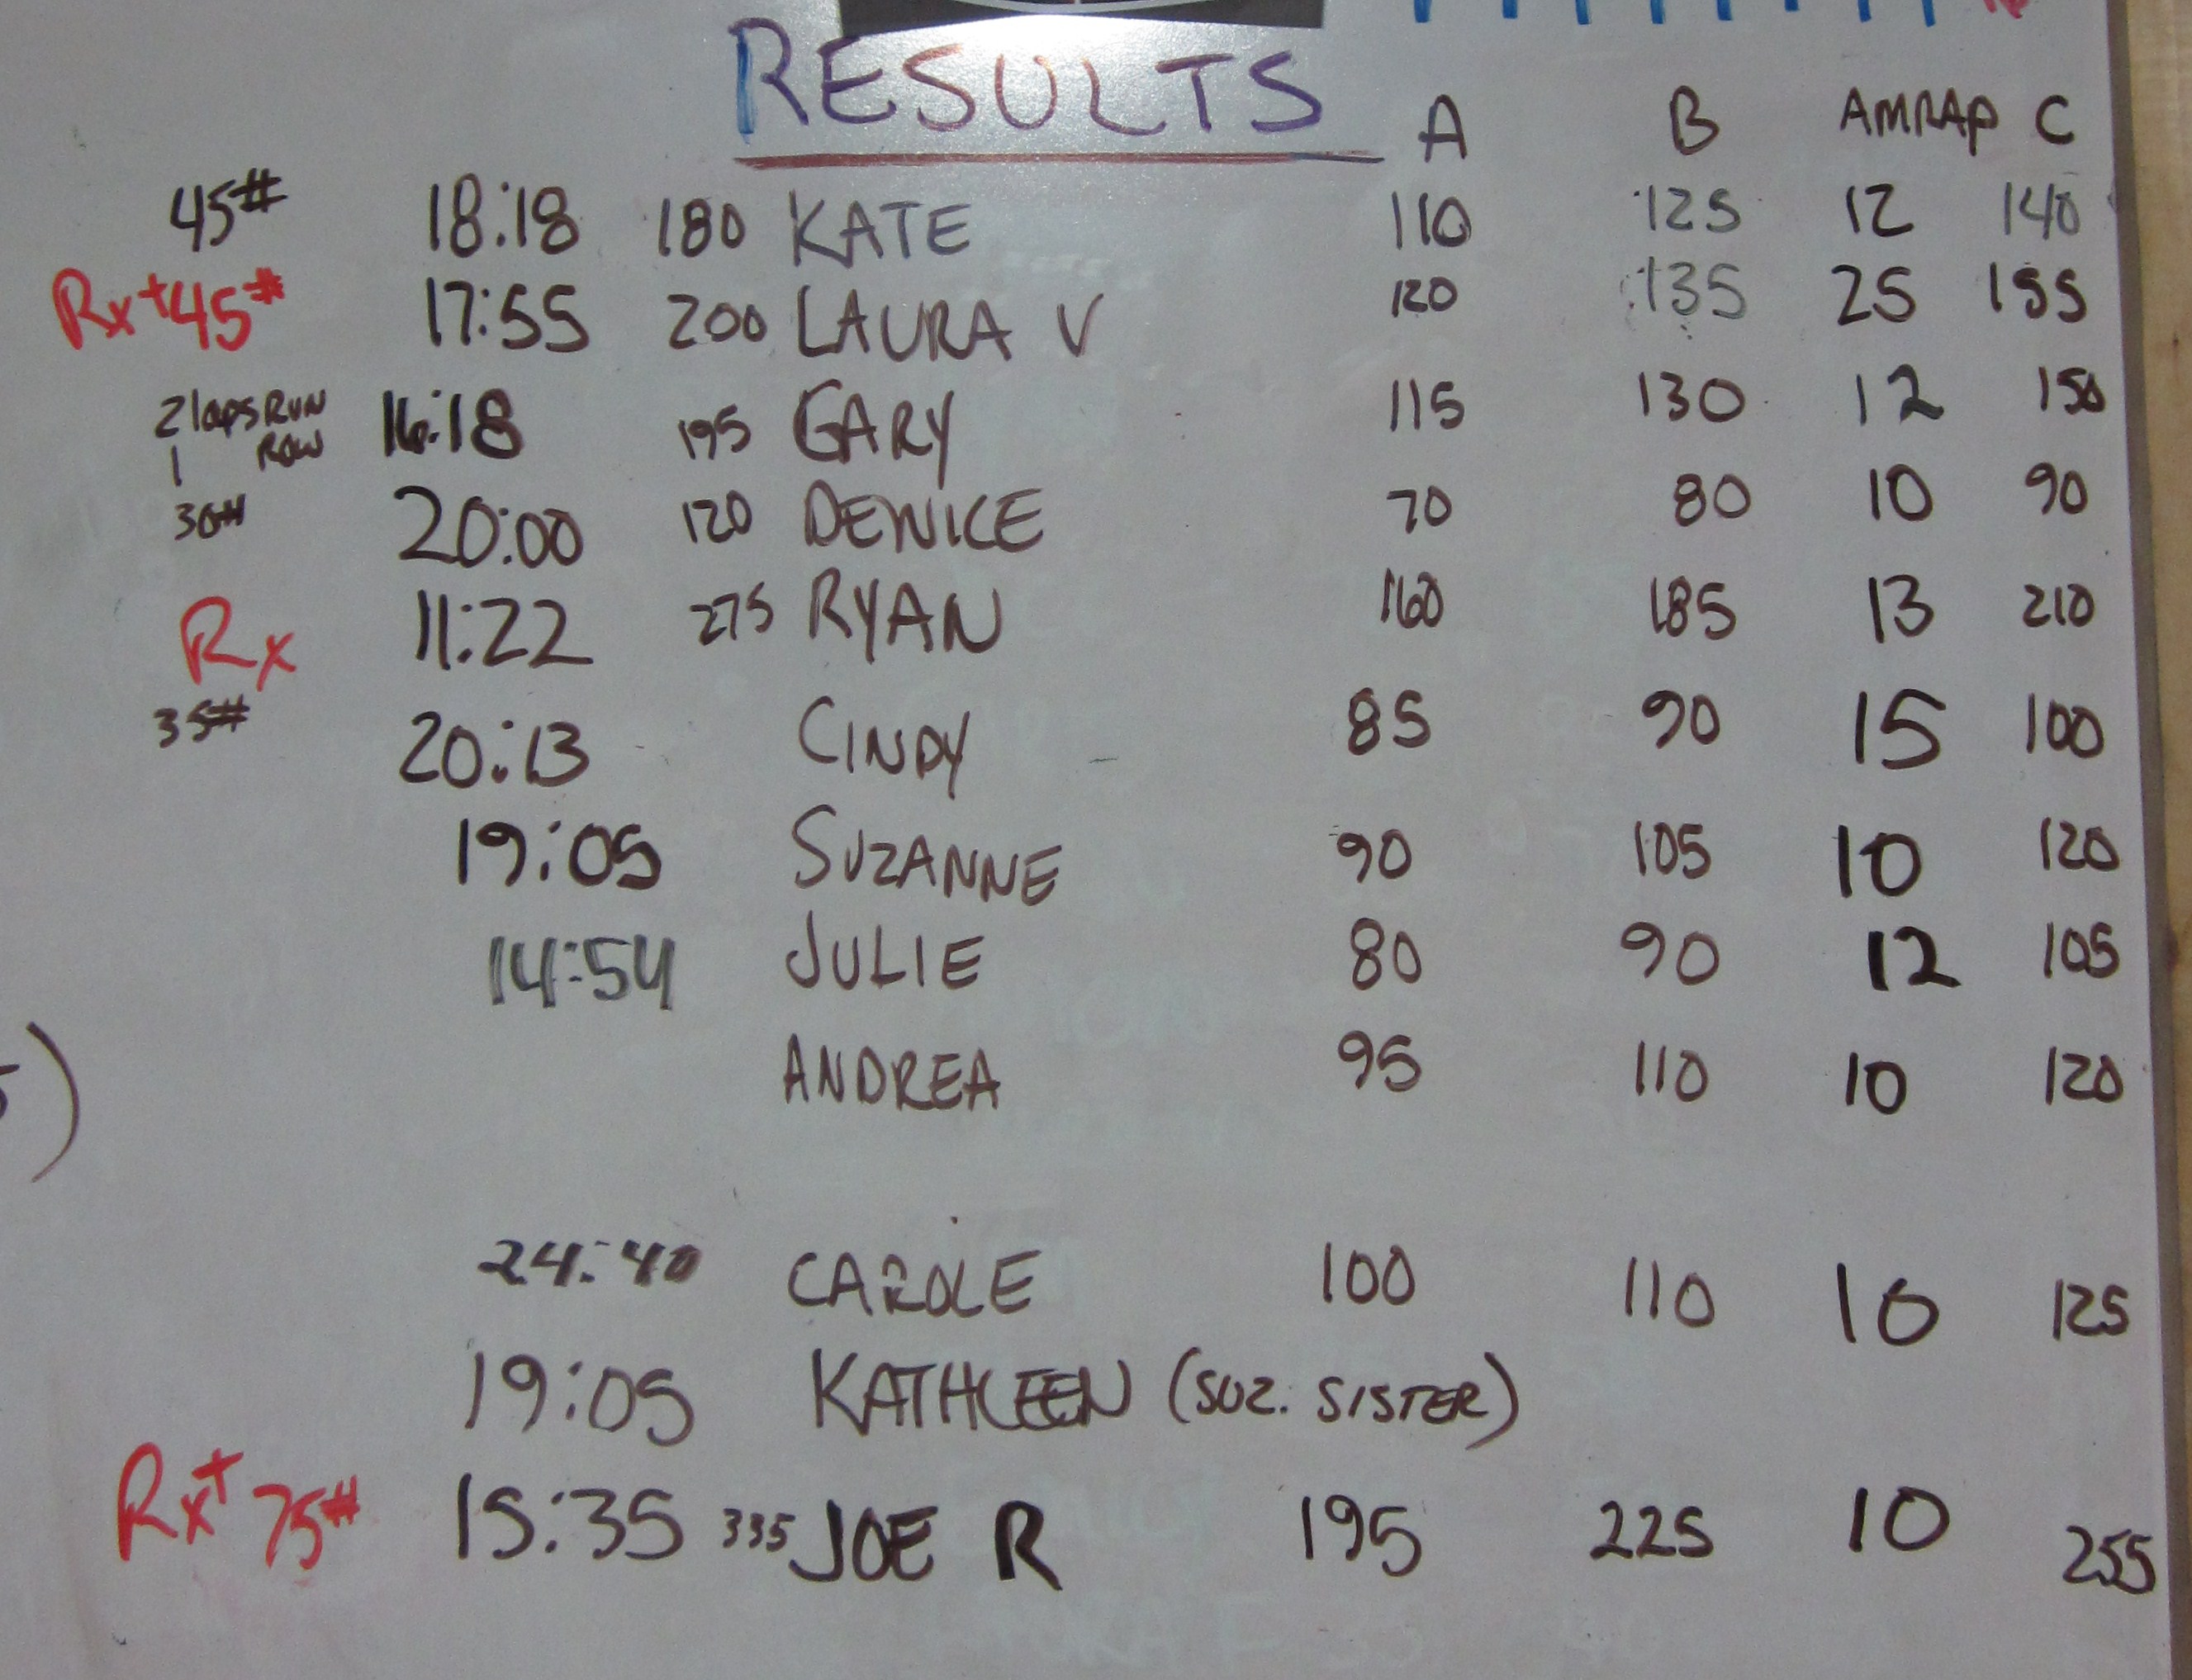 RESULTS A B AMRAP C
45# 18:18 180 KATE 110 125 12 140
Rx+ 45# 17:55 200 LAURA V 120 135 25 155
2 laps RUN 16:18 195 GARY 115 130 12 150
1 ROW
30# 20:00 120 DENICE 70 80 10 90
Rx 11:22 275 RYAN 160 185 13 210
35# 20:13 CINDY 85 90 15 100
19:05 SUZANNE 90 105 10 120
14:54 JULIE 80 90 12 105
ANDREA 95 110 10 120
)
24:40 CAROLE 100 110 10 125
19:05 KATHLEEN (SUZ. SISTER)
Rx+ 75# 15:35 335 JOE R 195 225 10 255